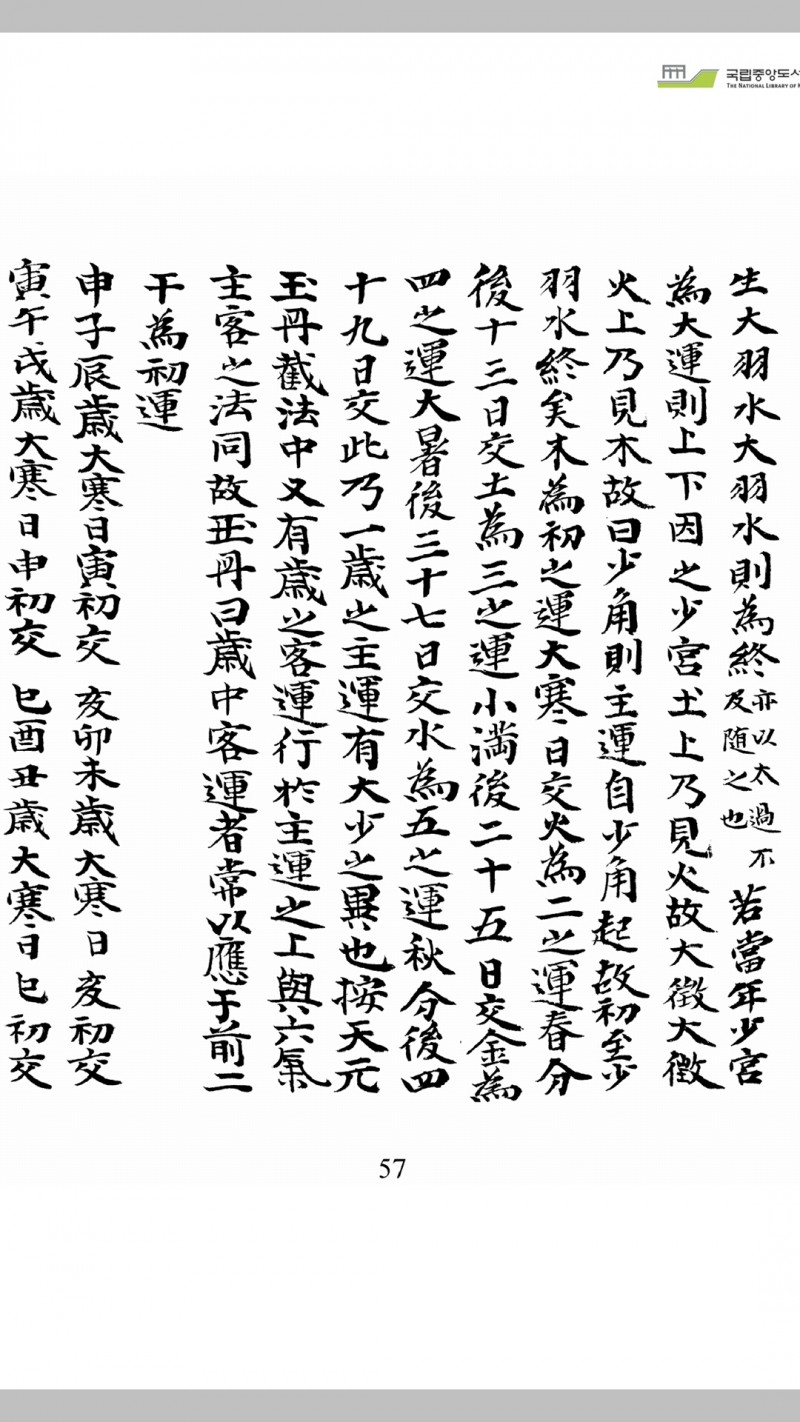 국립중앙도서
THE NATIONAL LIBRARY OF K
生大羽水大羽水則為終亦以太過不及随之也若當年少宮
為大運則上下因之少宮土上乃見火故大徵大徵
火上乃見木故曰少角則主運自少角起故初至少
羽水終矣木為初之運大寒日交火為二之運春分
後十三日交土為三之運小満後二十五日交金為
四之運大暑後三十七日交水為五之運秋分後四
十九日交此乃一歲之主運有大少之異也按天元
玉丹截法中又有歲之客運行於主運之上與六氣
主客之法同故玉丹曰歲中客運者常以應于前二
干為初運
申子辰歲大寒日寅初交 亥卯未歲大寒日亥初交
寅午戌歲大寒日申初交 巳酉丑歲大寒日巳初交
57